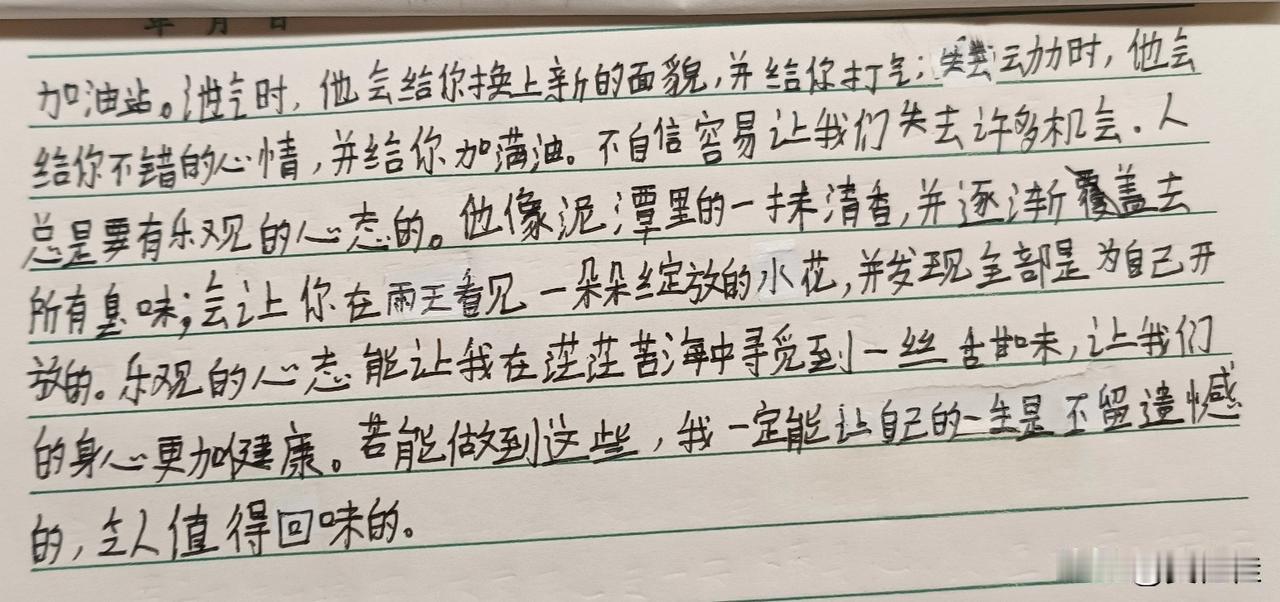 年 月 日
加油站。泄气时,他会给你换上新的面貌,并给你打气;失去动力时,他会
给你不错的心情,并给你加满油。不自信容易让我们失去许多机会.人
总是要有乐观的心态的。他像泥潭里的一抹清香,并逐渐覆盖去
所有臭味;会让你在雨天看见一朵朵绽放的水花,并发现全部是为自己开
放的。乐观的心态能让我在茫茫苦海中寻觅到一丝甘味,让我们
的身心更加健康。若能做到这些,我一定能让自己的一生是不留遗憾
的,令人值得回味的。